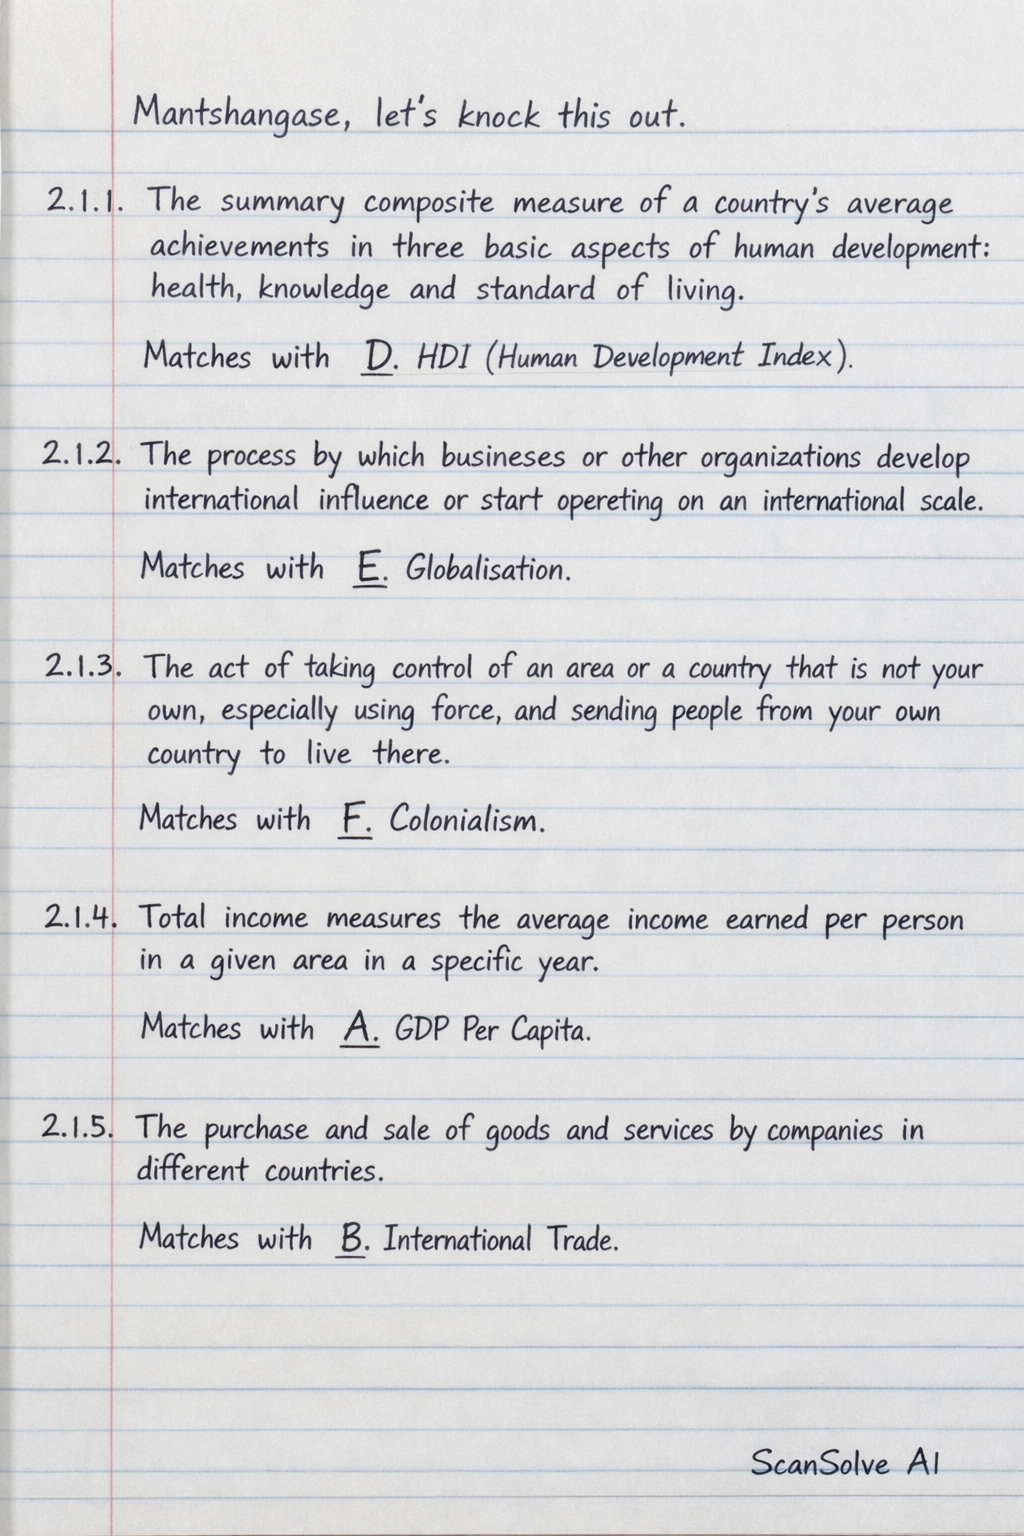 Mantshangase, let's knock this out.
2.1.1. The summary composite measure of a country's average
achievements in three basic aspects of human development:
health, knowledge and standard of living.
Matches with D. HDI (Human Development Index).
2.1.2. The process by which busineses or other organizations develop
international influence or start opereting on an international scale.
Matches with E. Globalisation.
2.1.3. The act of taking control of an area or a country that is not your
own, especially using force, and sending people from your own
country to live there.
Matches with F. Colonialism.
2.1.4. Total income measures the average income earned per person
in a given area in a specific year.
Matches with A. GDP Per Capita.
2.1.5. The purchase and sale of goods and services by companies in
different countries.
Matches with B. International Trade.
ScanSolve AI